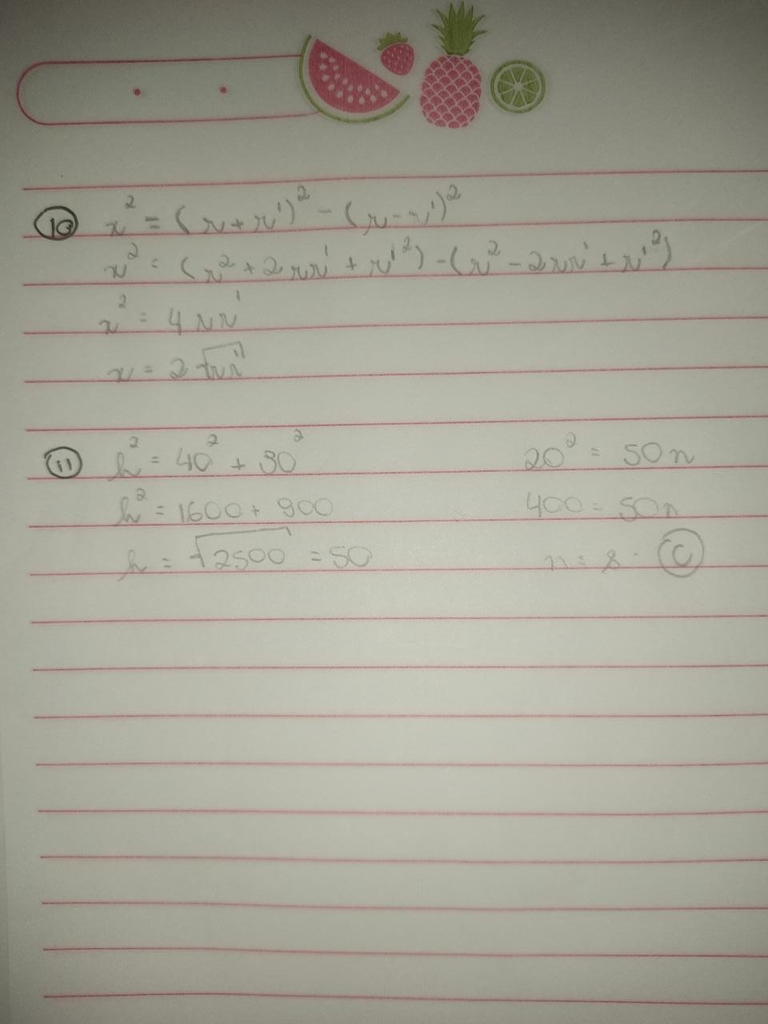 10 x² = (r + r')² - (r - r')²
x² = (r² + 2rr' + r'²) - (r² - 2rr' + r'²)
x² = 4rr'
x = 2√rr'
11 h² = 40² + 30²
h² = 1600 + 900
h = √2500 = 50
20² = 50n
400 = 50n
n = 8. C